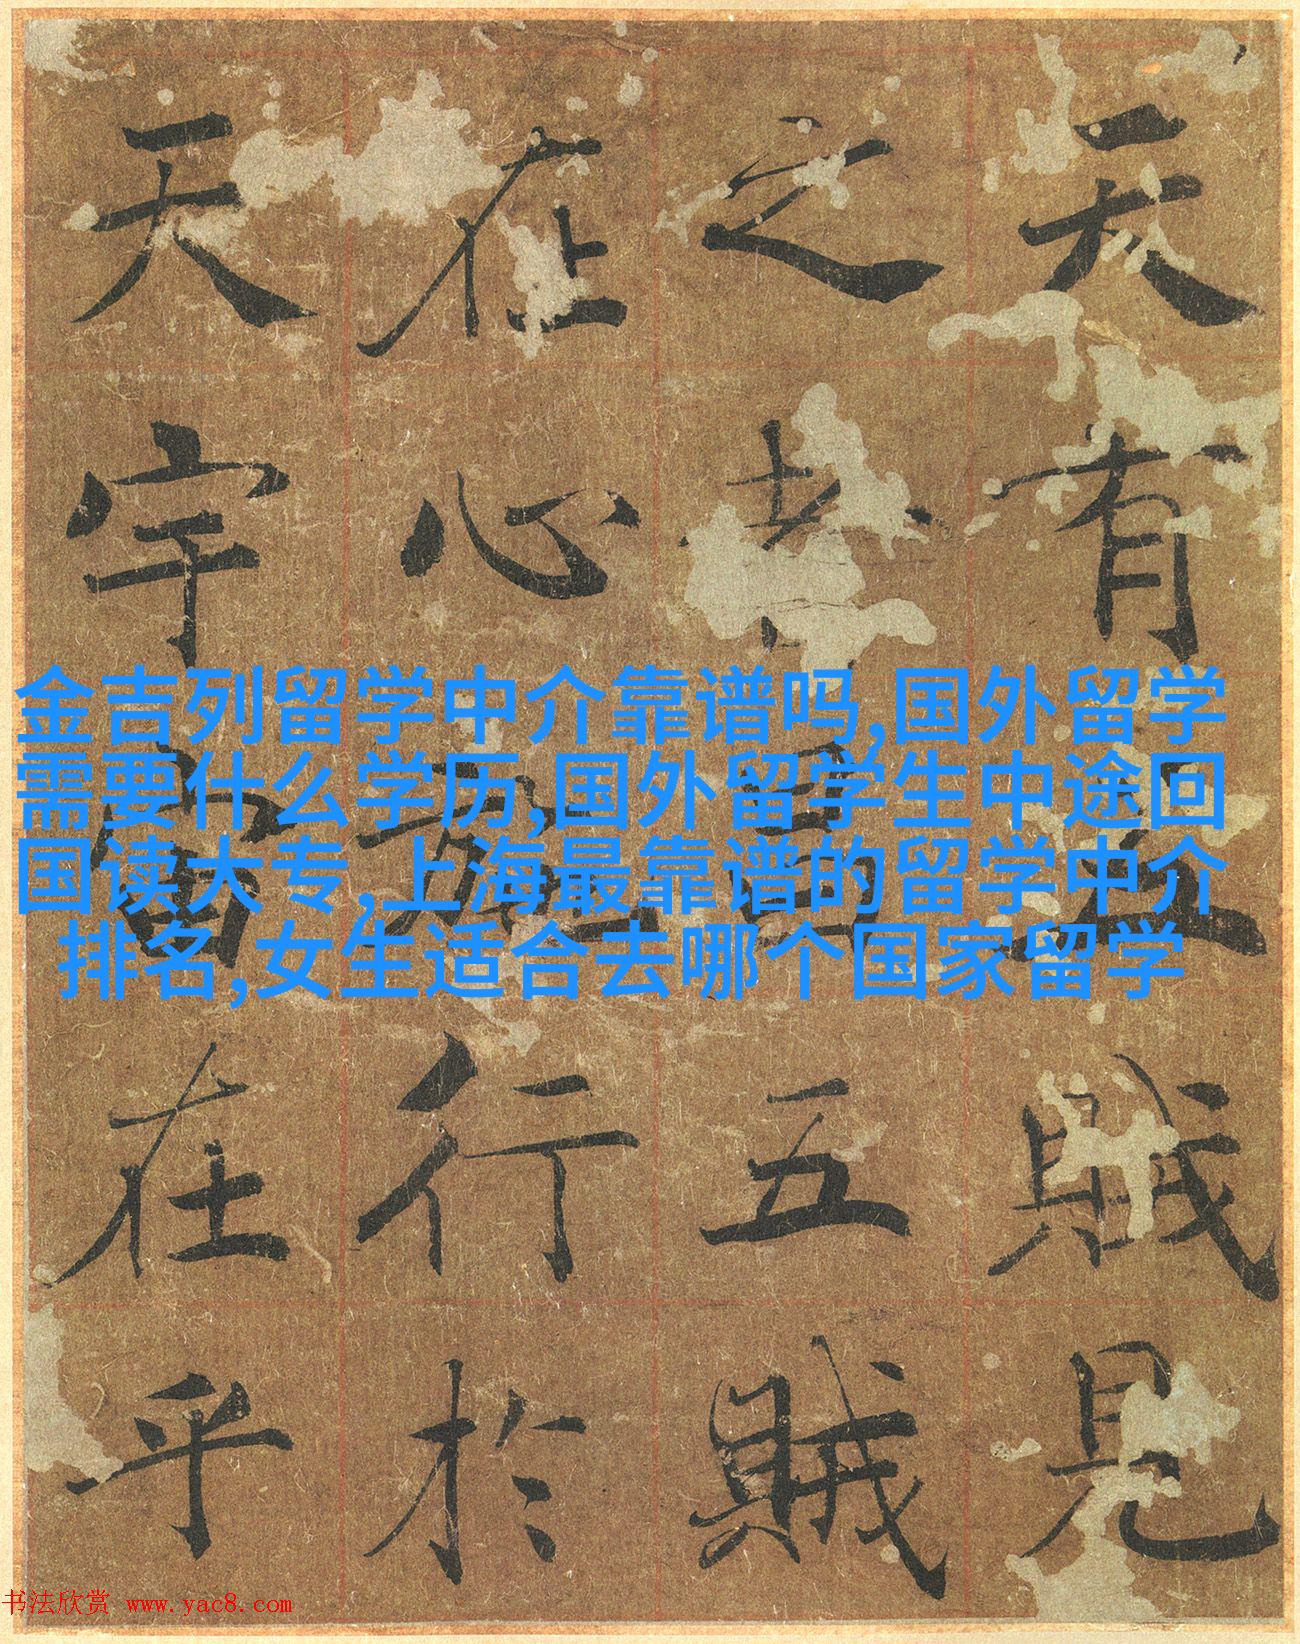 天有五賊見
之者昌五賊
在心施行於
天宇宙在乎
金吉列留学中介靠谱吗,国外留学
需要什么学历,国外留学生中途回
国读大专,上海最靠谱的留学中介
排名,女生适合去哪个国家留学
书法欣赏 www.yac8.com